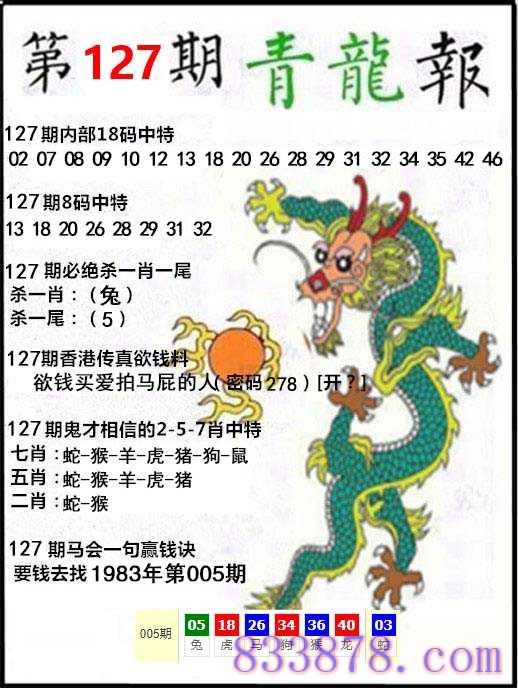 第127期青龍報
127期内部18码中特
02 07 08 09 10 12 13 18 20 26 28 29 31 32 34 35 42 46
127期8码中特
13 18 20 26 28 29 31 32
127期必绝杀一肖一尾
杀一肖：（兔）
杀一尾：（5）
127期香港传真欲钱料
欲钱买爱拍马屁的人(密码278)[开？]
127期鬼才相信的2-5-7肖中特
七肖：蛇-猴-羊-虎-猪-狗-鼠
五肖：蛇-猴-羊-虎-猪
二肖：蛇-猴
127期马会一句赢钱诀
要钱去找1983年第005期
005期 05 18 26 34 36 40 03
兔 虎 马 狗 猴 龙 蛇
833878.com